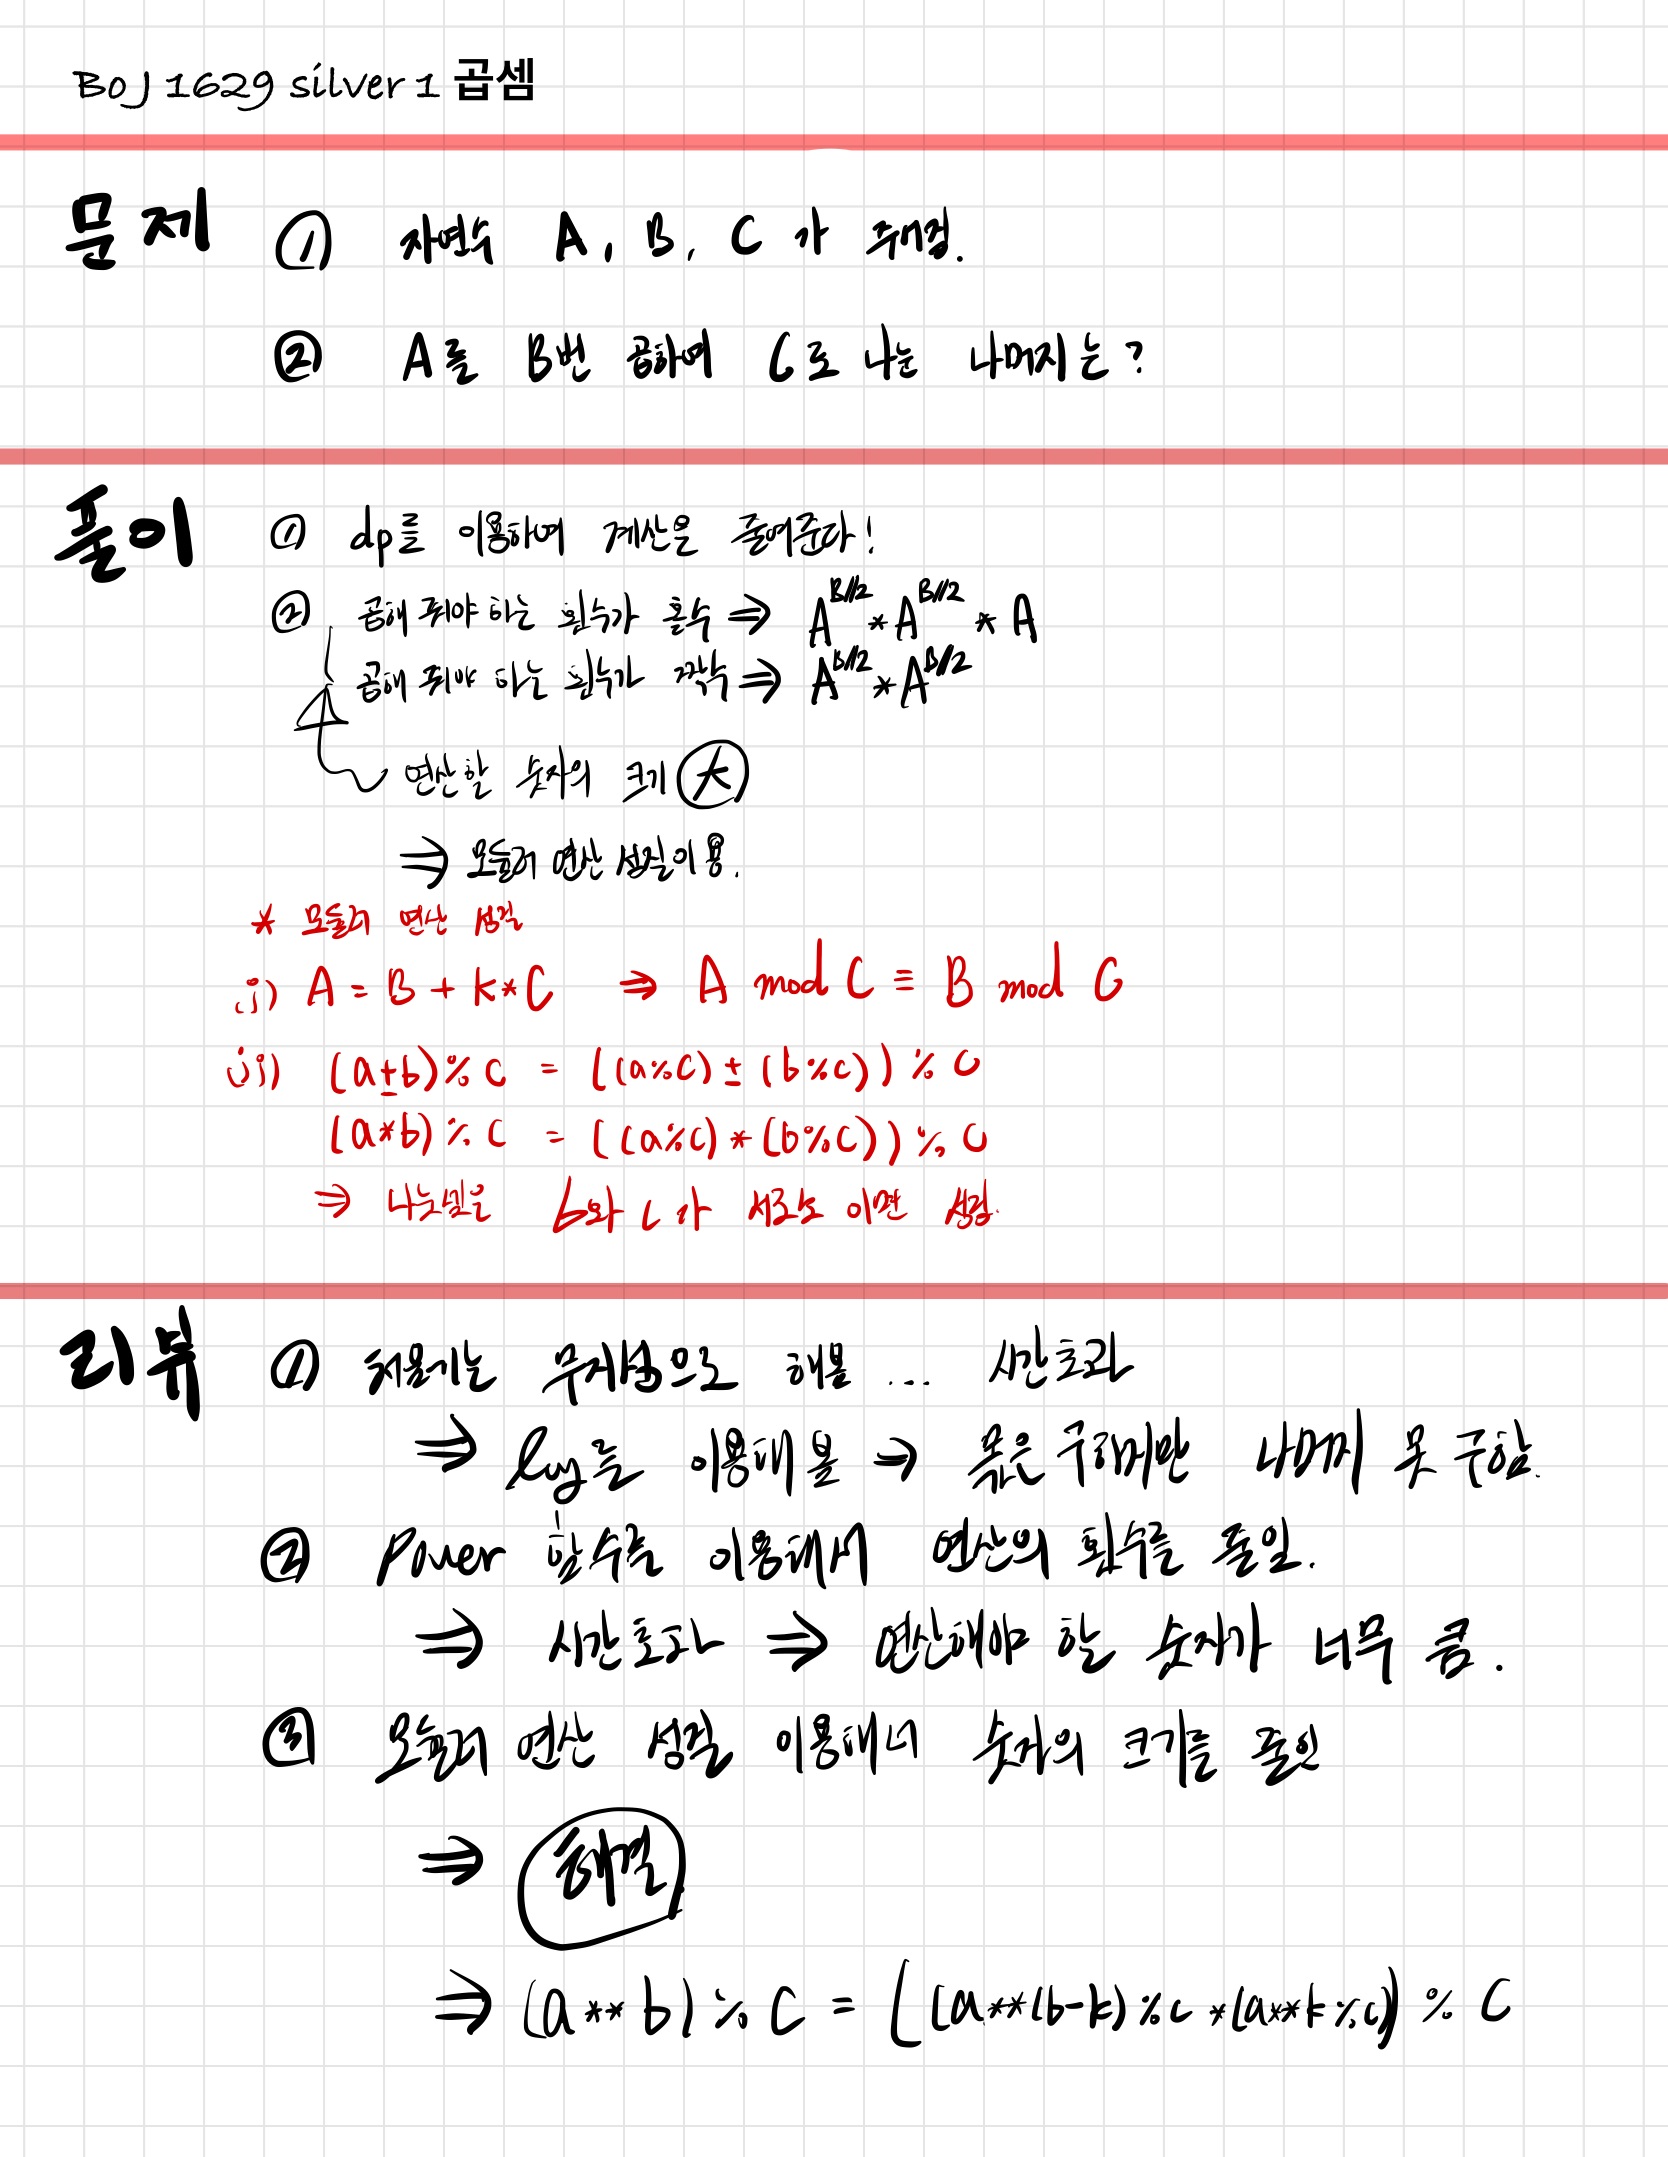 BOJ 1629 silver 1 곱셈
문제 ① 자연수 A, B, C 가 주어짐.
② A를 B번 곱하여 C로 나눈 나머지는?
풀이 ① dp를 이용하여 계산을 줄여준다!
② 곱해 줘야 하는 횟수가 홀수 ⇒ A^B//2 * A^B//2 * A
곱해 줘야 하는 횟수가 짝수 ⇒ A^B//2 * A^B//2
연산할 숫자의 크기 大
⇒ 모듈러 연산 성질이용.
* 모듈러 연산 성질
i) A = B + k*C ⇒ A mod C ≡ B mod C
ii) (a±b)%C = ((a%C) ± (b%C)) % C
(a*b)%C = ((a%C) * (b%C)) % C
⇒ 나눗셈은 b와 c가 서로소 이면 성립.
리뷰 ① 처음에는 무지성으로 해봄 ... 시간초과
⇒ log를 이용해 봄 → 몫은 구하지만 나머지 못 구함.
② Power 함수를 이용해서 연산의 횟수를 줄임.
⇒ 시간초과 ⇒ 연산해야 할 숫자가 너무 큼.
③ 모듈러 연산 성질 이용해서 숫자의 크기를 줄임
⇒ 해결
⇒ (a ** b) % C = ((a**(b-k)%c *(a**k%c)) % C